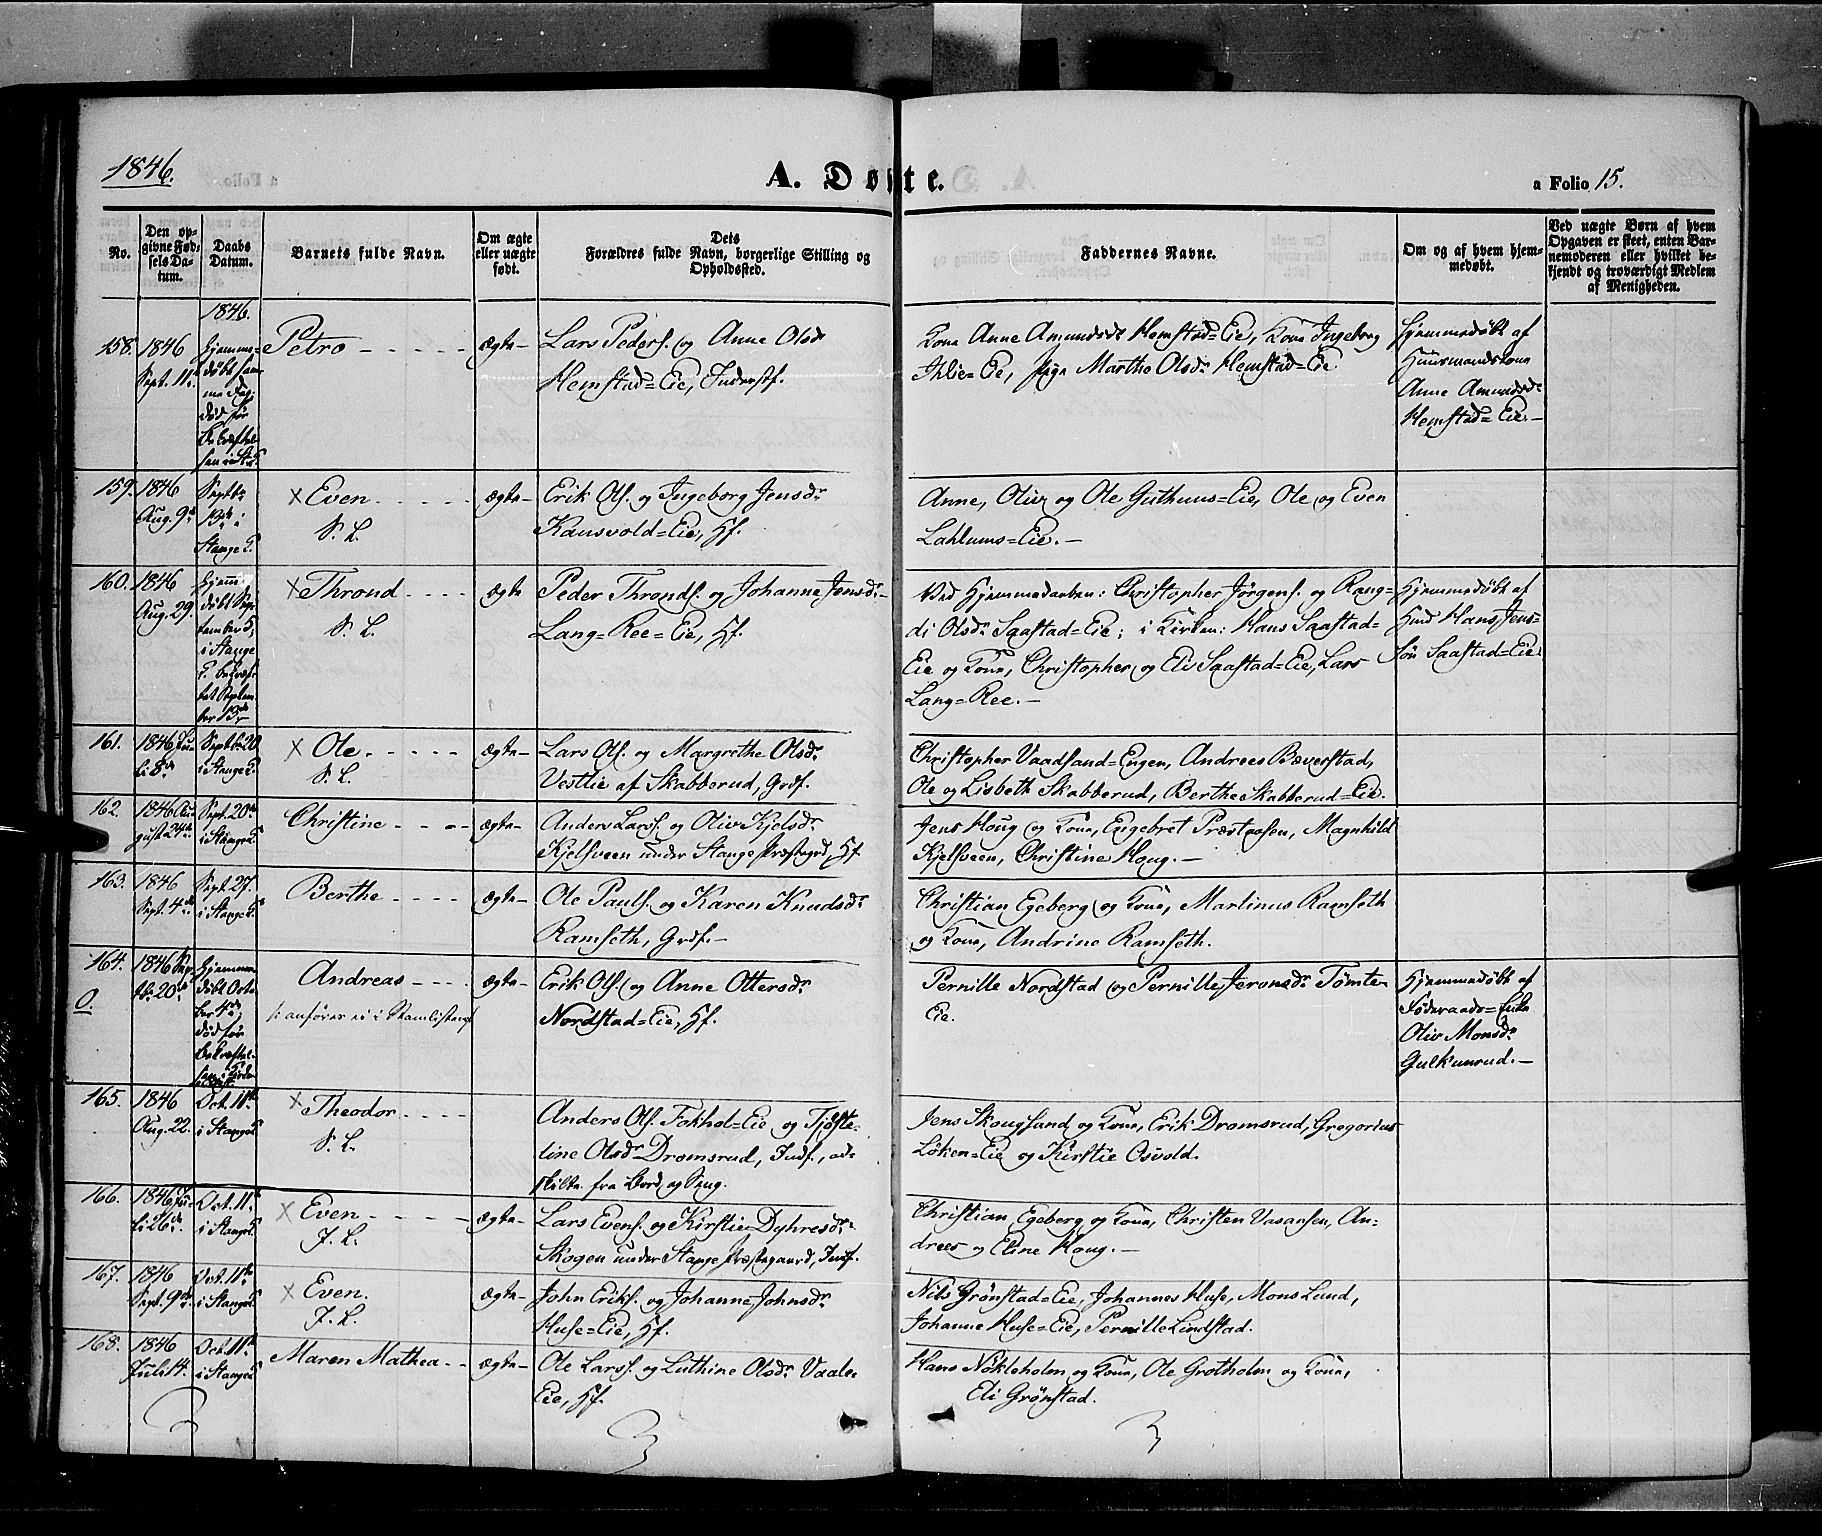 1846.
A. Døbte.
a Folio 15.
No.
Den op-
givne Fød-
sels Da-
tum.
Daabs
Datum.
Barnets fulde Navn.
Om ægte
eller uægte
født.
Dets
Forældres fulde Navn, borgerlige Stilling og
Opholdssted.
Faddernes Navne.
Om og af hvem hjem-
medøbt.
Ved uægte Børn af hvem
Opgaven er skeet, enten Bar-
nemoderen eller hvilket be-
kjendt og troværdigt Medlem
af Menigheden.
1846.
158.
1846
Sept. 11te
Hjemme-
døbt sam-
me Dag;
død før
Bekræftel-
sen i St. K.
Petro
ægte
Lars Peders. og Anne Olsdr
Hemstad=Eie, Inderstf.
Kone Anne Amundsdr Hemstad=Eie, Kone Ingeborg
Ihlie=Eie, Pige Marthe Olsdr Hemstad=Eie
Hjemmedøbt af
Huusmandskone
Anne Amundsdr
Hemstad=Eie.
159.
1846
Aug. 9de
Septbr
13de i
Stange K.
x Even
S. L.
ægte
Erik Ols. og Ingeborg Jensdr
Kausvold=Eie, Hf.
Anne, Oliv og Ole Guthuus=Eie, Ole og Even
Lahlums=Eie.
160.
1846
Aug. 29.
Hjem-
døbt Sep-
tember 5,
i Stange
K. bekræf-
tet Septem-
ber 13de
x Thrond
S. L.
ægte
Peder Thronds. og Johanne Jensdr
Lang=Ree=Eie, Hf.
Ved Hjemmedaaben: Christopher Jørgens. og Rang=
di Olsdr Saastad=Eie; i Kirken: Hans Saastad=
Eie og Kone, Christopher og Eli Saastad=Eie, Lars
Lang=Ree.
Hjemmedøbt af
Hmd Hans Jens-
søn Saastad=Eie.
161.
1846 Ju-
li 8de
Septbr 20
i Stange K.
x Ole
S. L.
ægte
Lars Ols. og Margrethe Olsdr
Vestlie af Skabberud, Grdf.
Christopher Vaadsand=Engen, Andrees Bæverstad,
Ole og Lisbeth Skabberud, Berthe Skabberud=Eie.
162.
1846 Au-
gust 24de
Sept. 20de
i Stange K.
Christine
ægte
Anders Larss. og Oliv Kjelsdr
Kjelsveen under Stange Præstegrd, Hf
Jens Houg og Kone, Engebret Præstaasen, Magnhild
Kjelsveen, Christine Houg.
163.
1846
Sept. 4de
Sept. 27.
i Stange K.
Berthe
ægte
Ole Pauls. og Karen Knudsdr
Ramseth, Grdf.
Christian Egeberg og Kone, Martinus Ramseth
og Kone, Andrine Ramseth.
164.
O
1846 Sep-
tbr 20de
Hjemme-
døbt Octo-
ber 4de,
død før
Bekræftel-
sen i Kirken
Andreas
/: anføres ei i Stamlisten :/
ægte
Erik Ols. og Anne Ottersdr
Nordstad=Eie, Hf.
Pernille Nordstad og Pernille Jeronsdr Tømte-
Eie.
Hjemmedøbt af
Føderaads=Enke
Oliv Monsdr
Gulkunrud.
165.
1846
Aug. 22.
Oct. 11te
i Stange K
x Theodor
S. L.
Anders Ols. Fokhol=Eie og Tjøste-
line Olsdr Dromsrud, Indf., ad-
skilte fra Bord og Seng.
Jens Skougsund og Kone, Erik Dromsrud, Gregorius
Løken=Eie og Kirstie Osvold.
166.
1846 Ju-
li 26de
Oct. 11te
i Stange K
x Even
J. L.
ægte
Lars Evens. og Kirstie Dyhresdr
Skogen under Stange Præstegaard, Indf.
Christian Egeberg og Kone, Christen Vasaasen, An-
drees og Eline Houg.
167.
1846
Sept. 9de
Oct. 11te
i Stange K
x Even.
J. L.
ægte
John Eriks. og Johanne Johnsdr
Huse=Eie, Hf.
Nils Grønstad=Eie, Johannes Huse, Mons Lund,
Johanne Huse=Eie, Pernille Lindstad.
168.
1846
Juli 14.
Oct. 11te
i Stange K
Maren Mathea
ægte
Ole Larss. og Luthine Olsdr Vaale-
Eie, Hf.
Hans Nökleholm og Kone, Ole Grotholm og Kone,
Eli Grønstad.